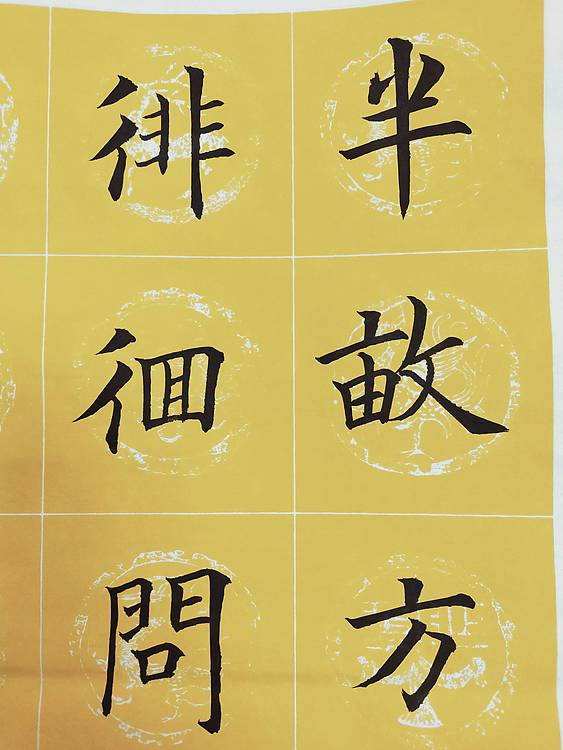 半畝方
徘徊問